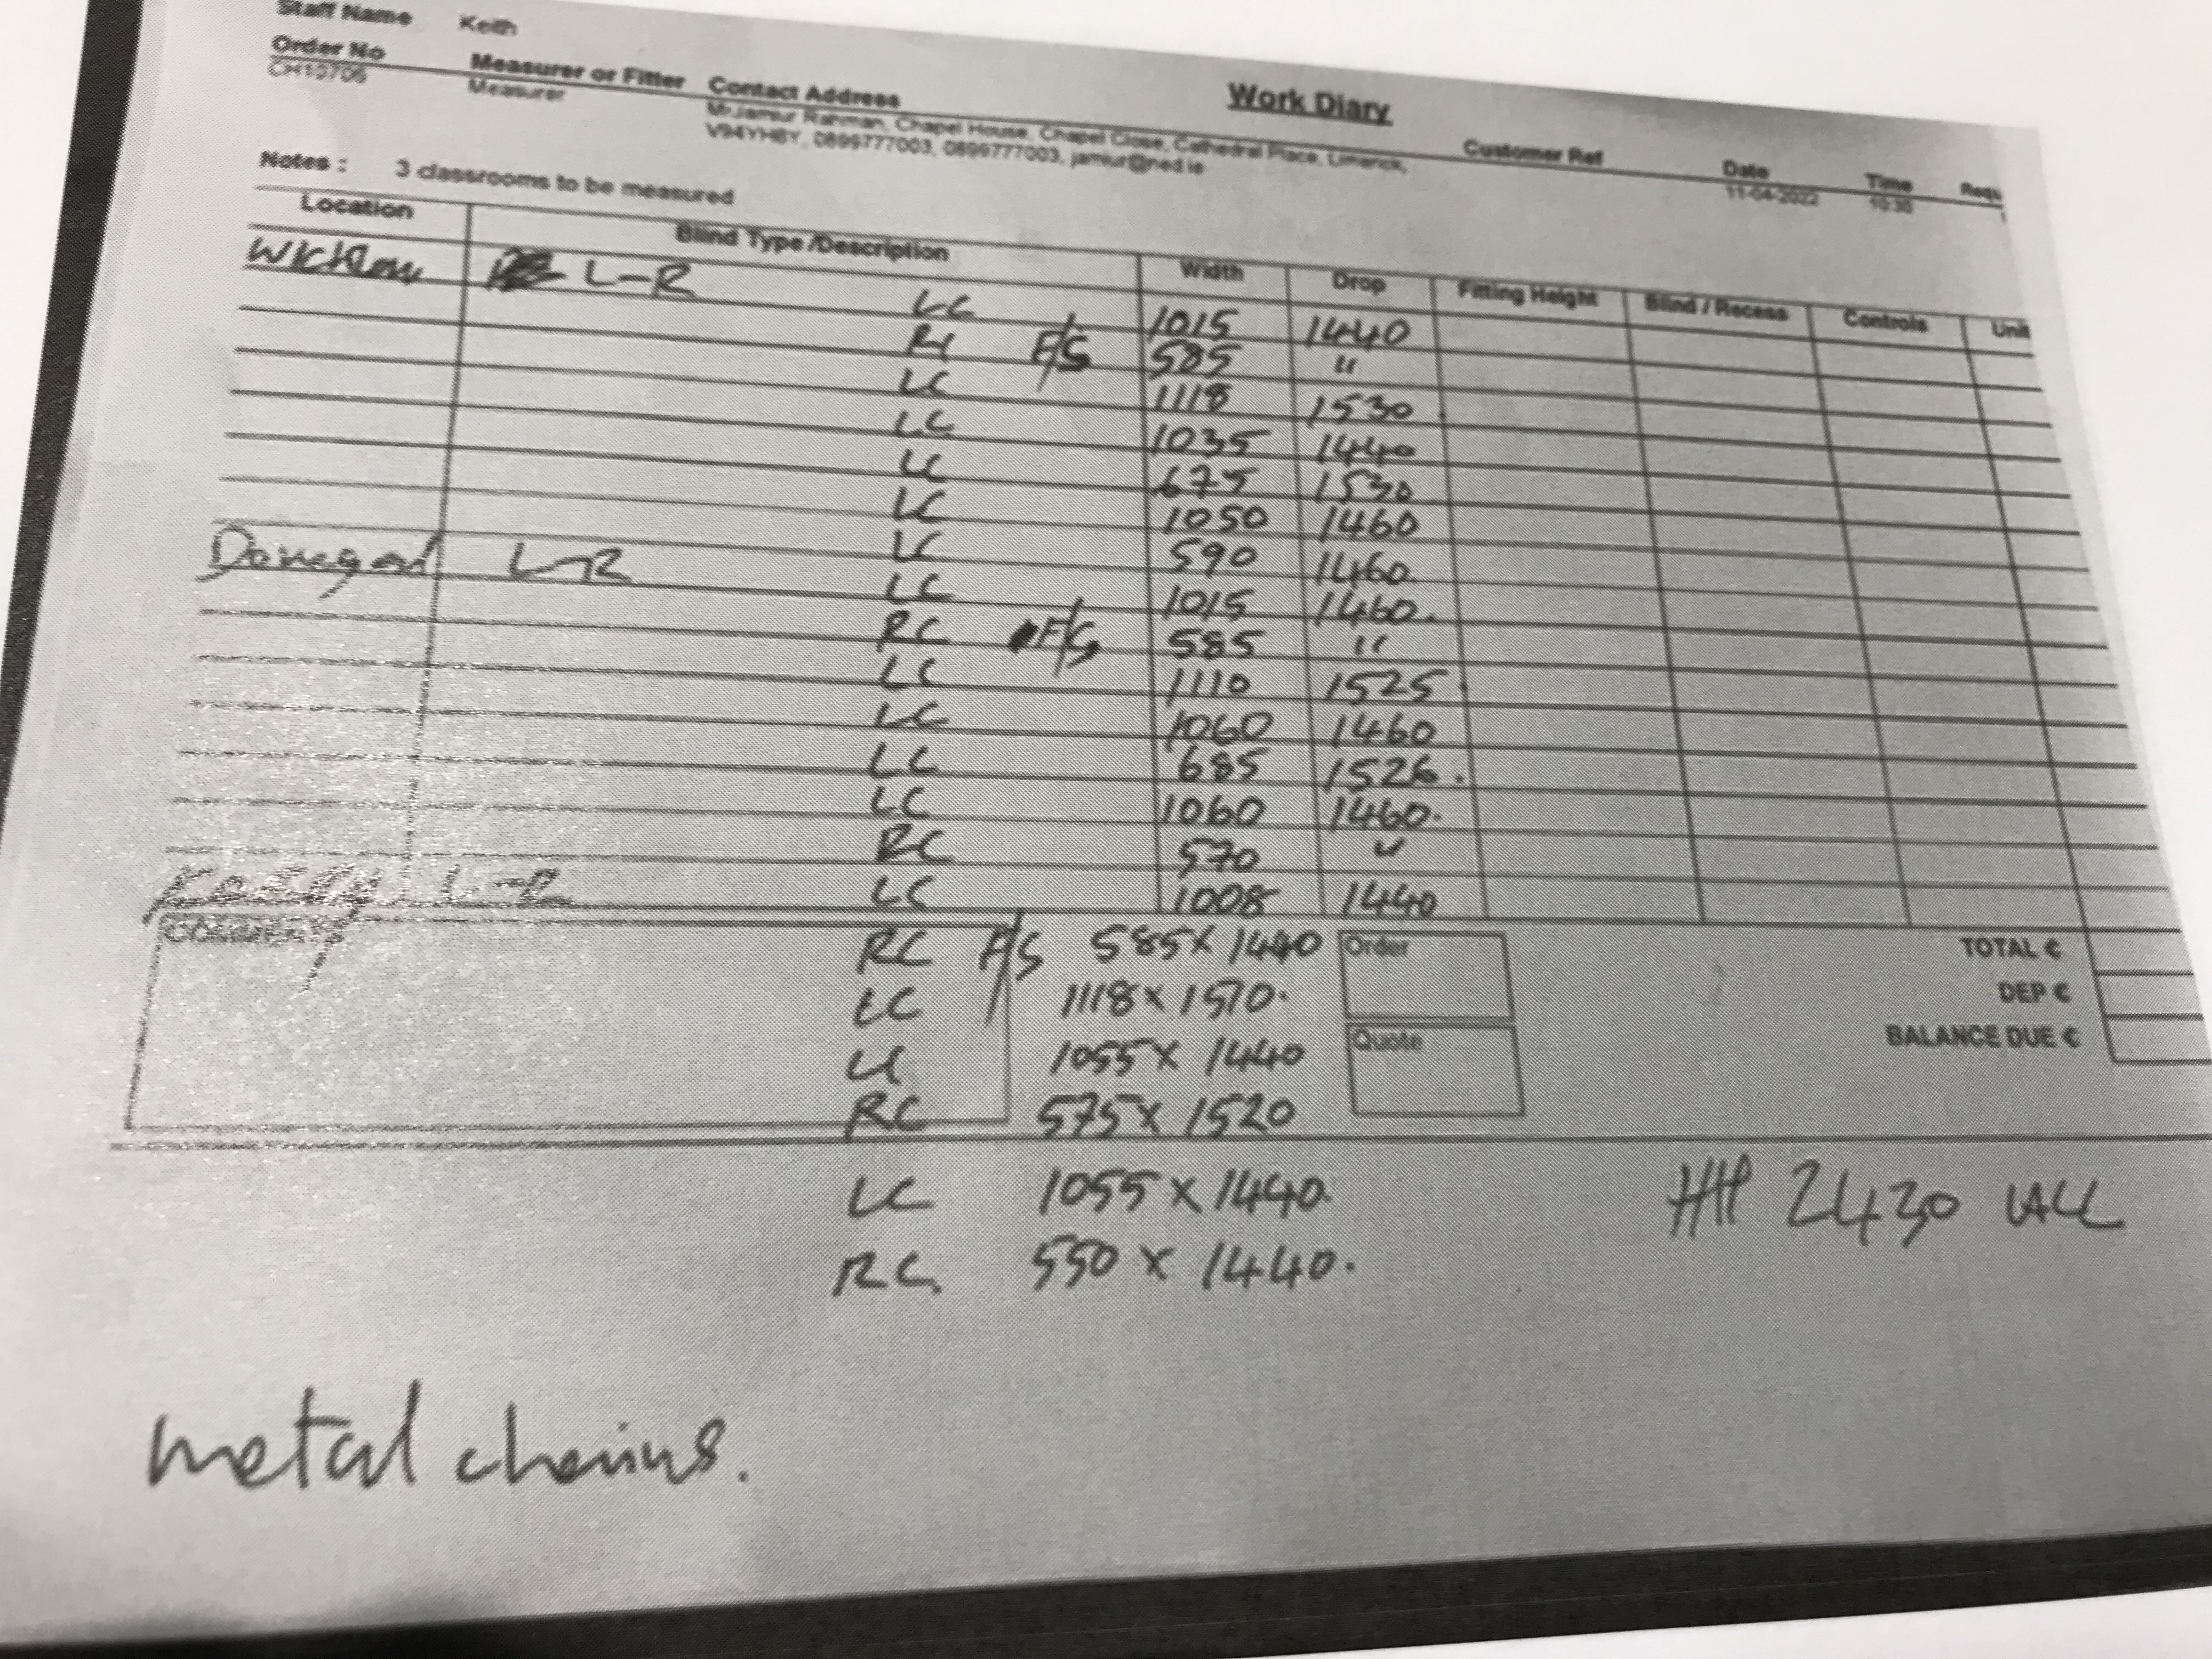 Staff Name Keith
Work Diary
Order No Measurer or Fitter Contact Address Customer Ref Date Time Requ
CH10706 Measurer Mr Jamiur Rahman, Chapel House, Chapel Close, Cathedral Place, Limerick, 11-04-2022 10:30
V94YH8Y, 0899777003, 0899777003, jamiur@ned.ie
Notes : 3 classrooms to be measured
Location Blind Type /Description Width Drop Fitting Height Blind / Recess Controls Unit
Wicklow L-R LC 1015 1440
RC F/S 585 "
LC 1118 1530
LC 1035 1440
LC 675 1530
LC 1050 1460
LC 590 1460
Donegal L-R LC 1015 1460
RC F/S 585 "
LC 1110 1525
LC 1060 1460
LC 685 1526
LC 1060 1460
RC 570 "
Kerry L-R LC 1008 1440
Comments
RC F/S 585 x 1440 Order TOTAL €
LC 1118 x 1570 DEP €
LC 1055 x 1440 Quote BALANCE DUE €
RC 575 x 1520
LC 1055 x 1440 2430 ALL
RC 550 x 1440
metal chains.